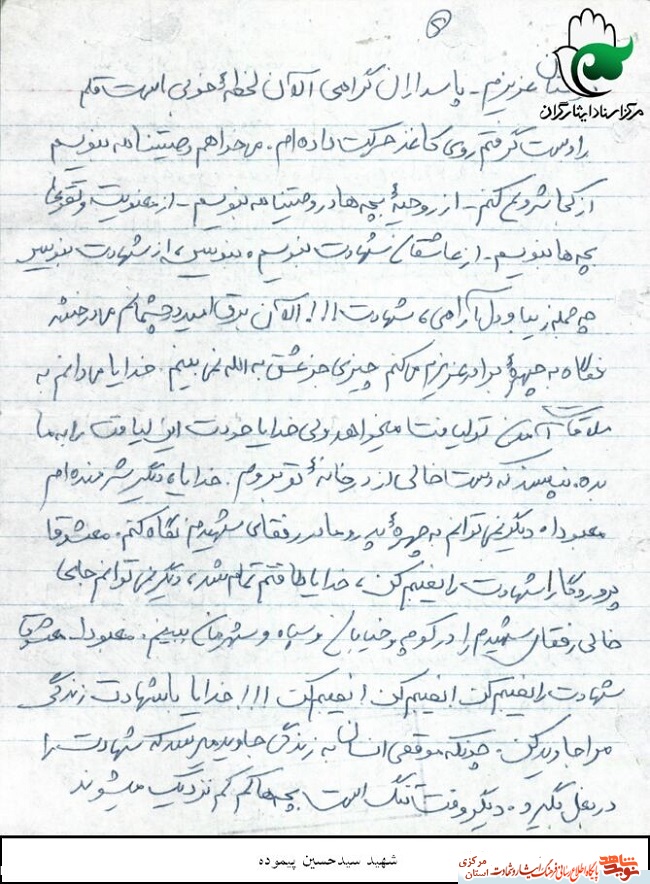 ۵
عزیزم - پاسداران گرامی الآن لحظهٔ خوبی است قلم
مرکز اسناد ایثارگران
را دست گرفتم روی کاغذ حرکت داده ام. می خواهم وصیتنامه بنویسم
از کجا شروع کنم - از روحیهٔ بچه ها در وصیتنامه بنویسم - از معنویت و تقوای
بچه ها بنویسم - از عاشقان شهادت بنویسم، بنویس، از شهادت بنویس
چه جمله زیبا و دل آرامی، شهادت!!! الآن برق امید در چشمانم می درخشد
نگاه به چهرهٔ برادر عزیزم می کنم چیزی جز عشق به الله نمی بینم. خدایا می دانم به
ملاقات آمدن تو لیاقت میخواهد ولی خدایا خودت این لیاقت را به ما
بده. نپسند که دست خالی از در خانهٔ تو بروم. خدایا، دیگر شرمنده ام
معبودا، دیگر نمی توانم به چهرهٔ پدر و مادر رفقای شهیدم نگاه کنم. معشوقا
پروردگارا شهادت را نصیبم کن، خدایا طاقتم تمام شد، دیگر نمی توانم جای
خالی رفقای شهیدم را در کوچه و خیابان و سپاه و شهرمان ببینم. معبودا معشوقا
شهادت را نصیبم کن! نصیبم کن! نصیبم کن!!! خدایا با شهادت زندگی
مرا جاوید کن. چونکه موقعی انسان به زندگی جاوید میرسد که شهادت را
در بغل بگیرد. دیگر وقت تنگ است بچه ها کم کم نزدیک میشوند
شهید سیدحسین پیموده
نوید شاهد
پایگاه اطلاع رسانی فرهنگ ایثار و شهادت
استان مرکزی